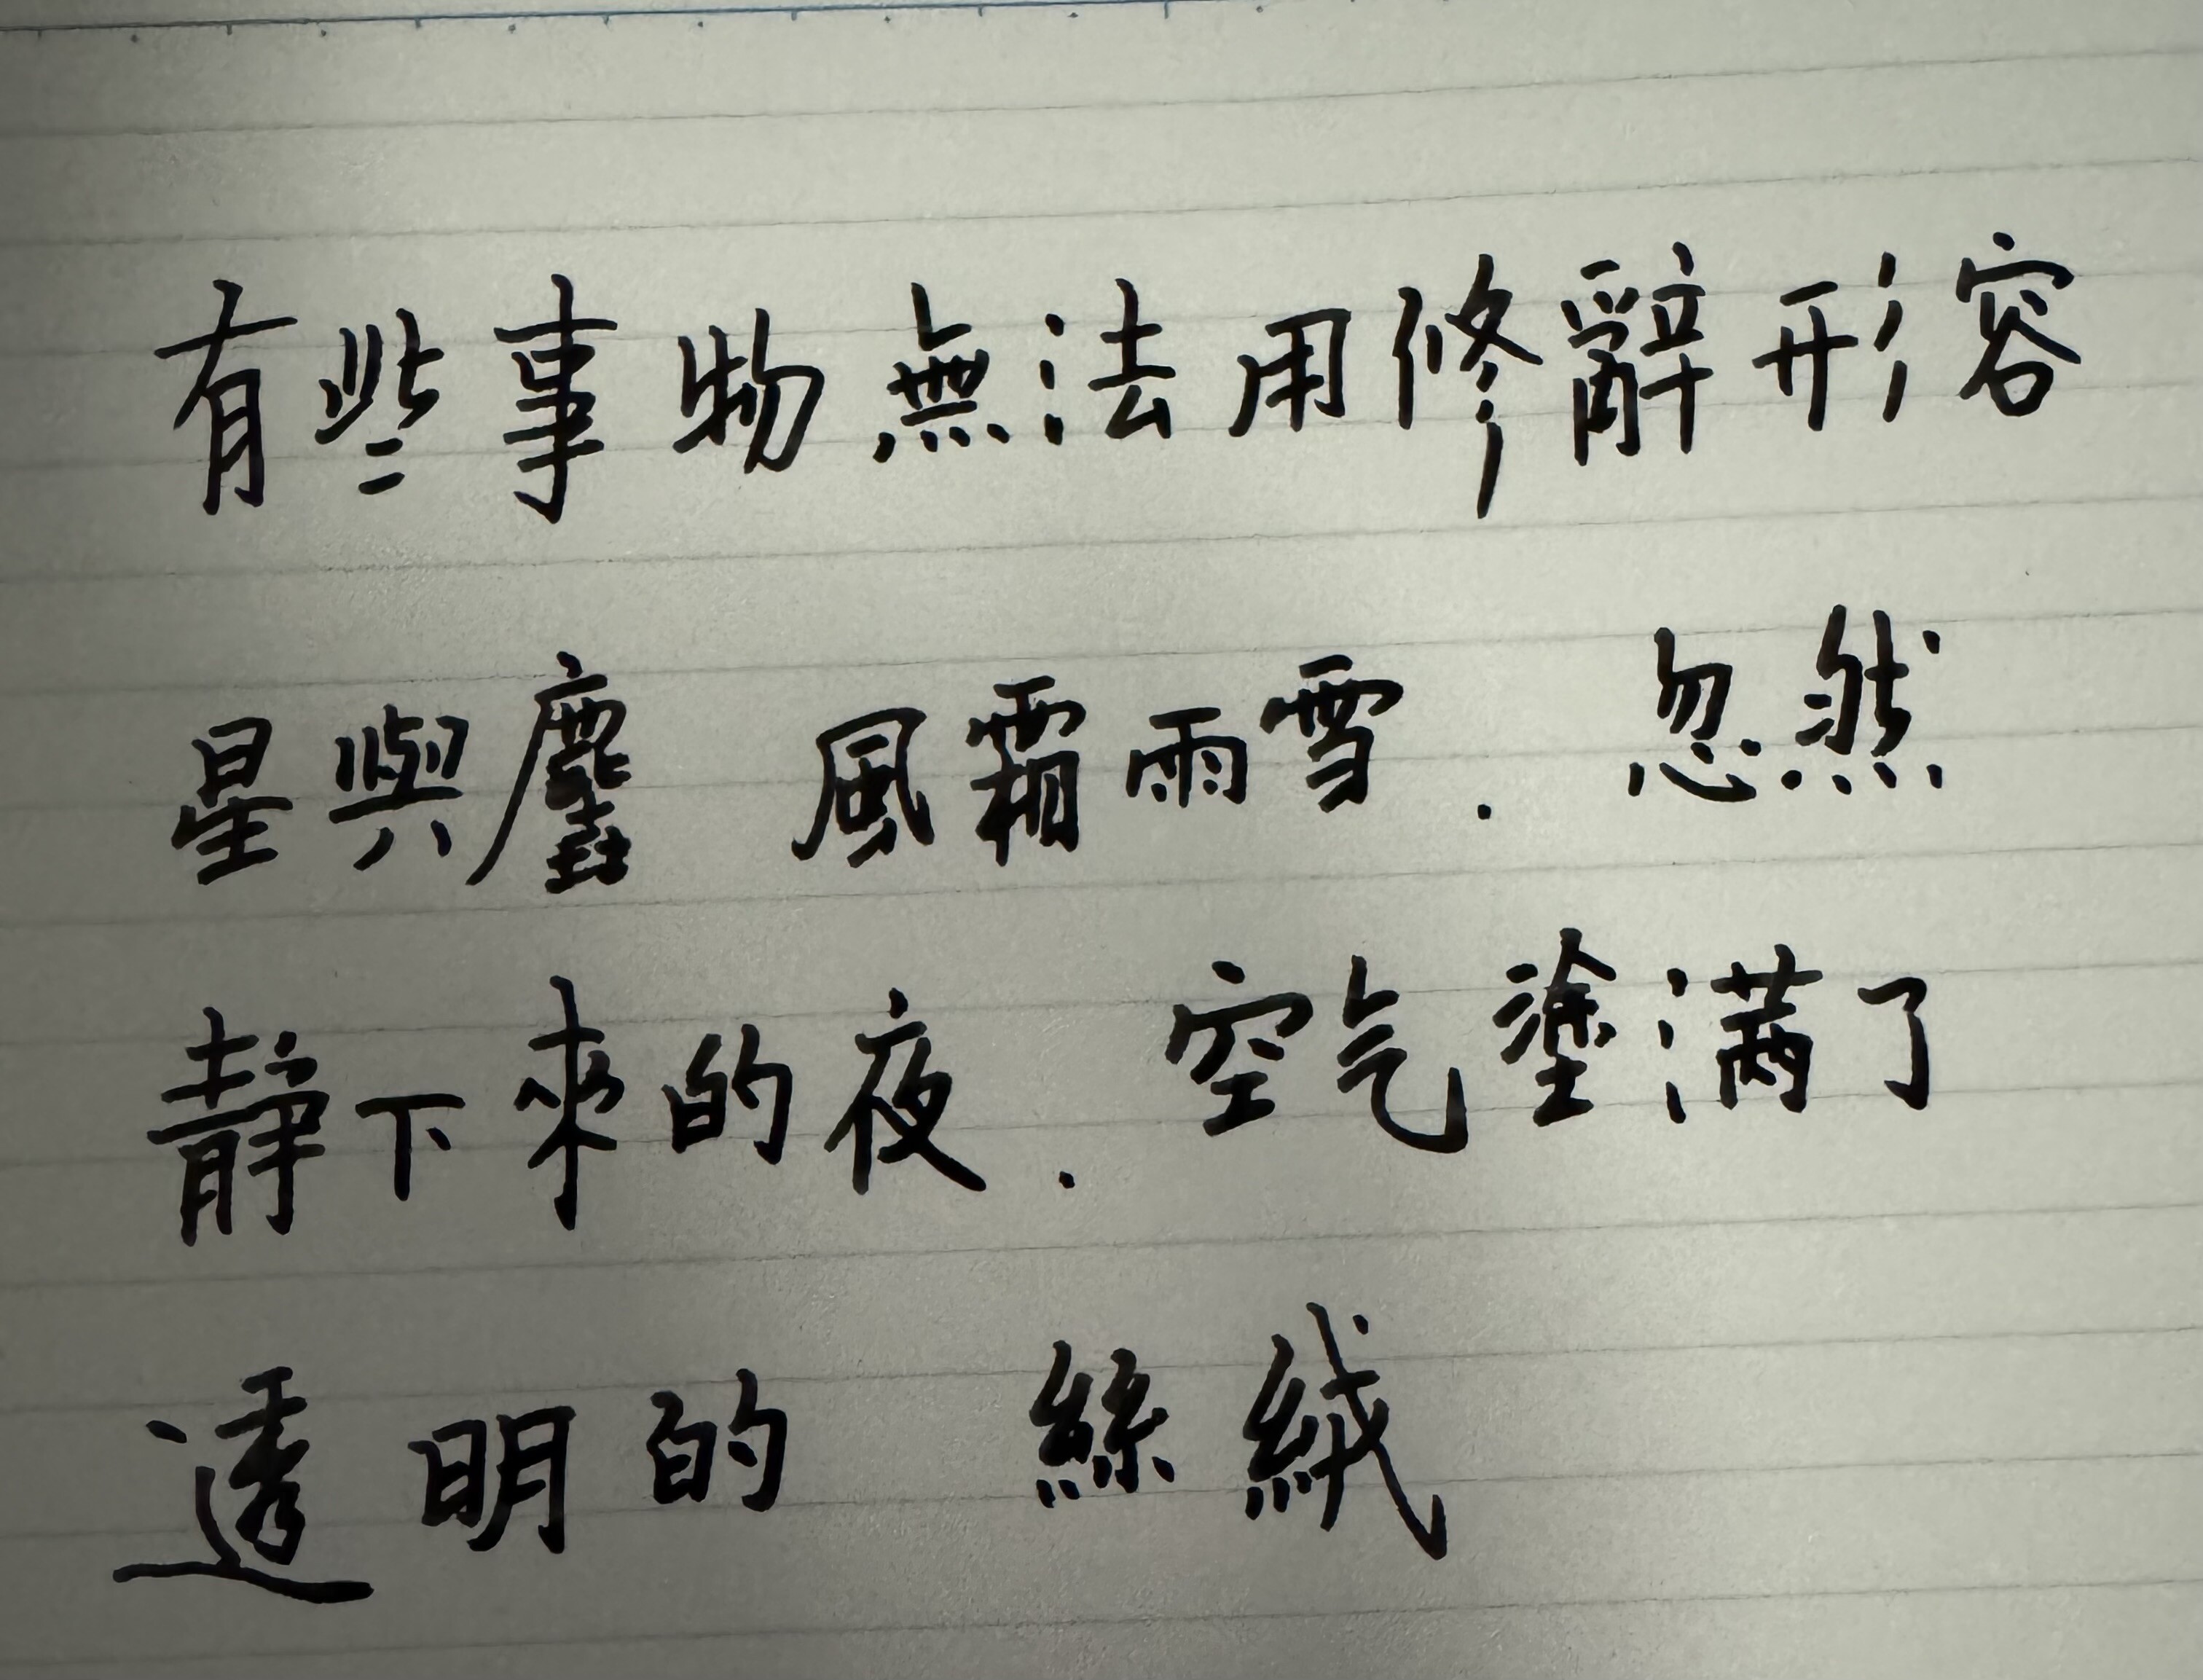 有些事物無法用修辭形容
星與塵 風霜雨雪. 忽然
靜下來的夜. 空气塗满了
透明的 絲絨